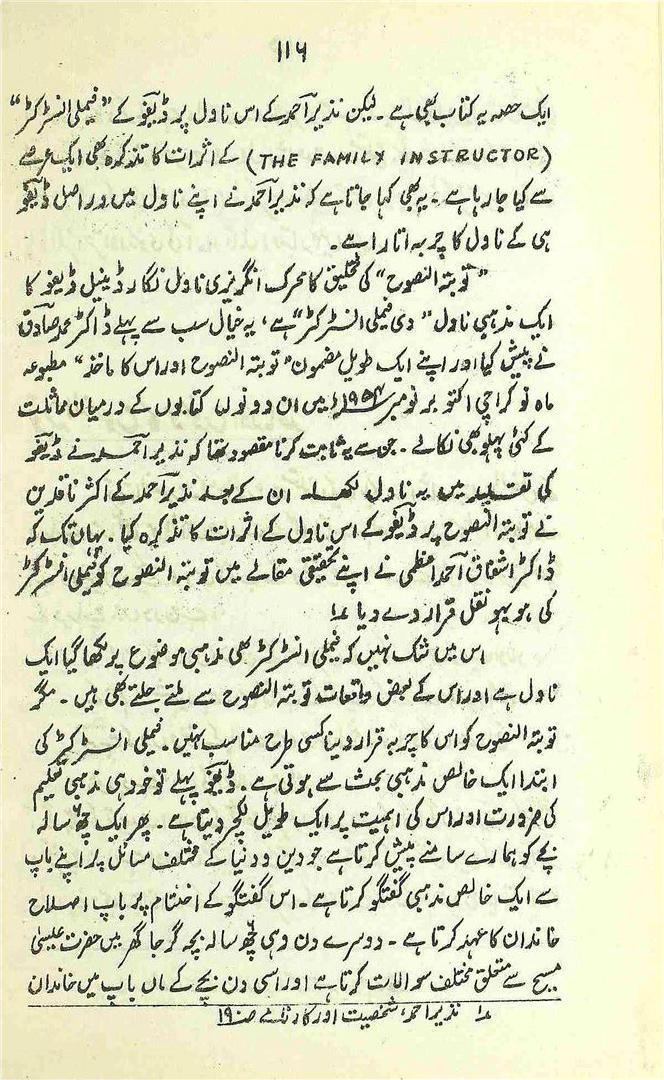 ۱۱۶
ایک حصہ یہ کتاب بھی ہے ۔ لیکن نذیر احمد کے اس ناول پر ڈیفو کے ”فیملی انسٹرکٹر“
(THE FAMILY INSTRUCTOR) کے اثرات کا تذکرہ بھی ایک عرصے
سے کیا جا رہا ہے ۔ یہ بھی کہا جاتا ہے کہ نذیر احمد نے اپنے ناول میں دراصل ڈیفو
ہی کے ناول کا چربہ اتارا ہے ۔
”توبتہ النصوح“ کی تخلیق کا محرک انگریزی ناول نگار ڈینیل ڈیفو کا
ایک مذہبی ناول ”دی فیملی انسٹرکٹر“ ہے ، یہ خیال سب سے پہلے ڈاکٹر محمد صادق
نے پیش کیا اور اپنے ایک طویل مضمون ”توبتہ النصوح اور اس کا ماخذ“ مطبوعہ
ماہ نو کراچی اکتوبر نومبر ۱۹۵۴ء میں ان دونوں کتابوں کے درمیان مماثلت
کے کئی پہلو بھی نکالے ۔ جن سے یہ ثابت کرنا مقصود تھا کہ نذیر احمد نے ڈیفو
کی تقلید میں یہ ناول لکھا۔ ان کے بعد نذیر احمد کے اکثر ناقدین
نے توبتہ النصوح پر ڈیفو کے اس ناول کے اثرات کا تذکرہ کیا ۔ یہاں تک کہ
ڈاکٹر اشفاق احمد اعظمی نے اپنے تحقیقی مقالے میں توبتہ النصوح کو فیملی انسٹرکٹر
کی ہو بہو نقل قرار دے دیا ۱؎
اس میں شک نہیں کہ فیملی انسٹرکٹر بھی مذہبی موضوع پر لکھا گیا ایک
ناول ہے اور اس کے بعض واقعات توبتہ النصوح سے ملتے جلتے بھی ہیں ۔ مگر
توبتہ النصوح کو اس کا چربہ قرار دینا کسی طرح مناسب نہیں ۔ فیملی انسٹرکٹر کی
ابتدا ایک خالص مذہبی بحث سے ہوتی ہے ۔ ڈیفو پہلے تو خود ہی مذہبی تعلیم
کی ضرورت اور اس کی اہمیت پر ایک طویل لکچر دیتا ہے ۔ پھر ایک چھ سالہ
بچے کو ہمارے سامنے پیش کرتا ہے جو دین و دنیا کے مختلف مسائل پر اپنے باپ
سے ایک خالص مذہبی گفتگو کرتا ہے ۔ اس گفتگو کے اختتام پر باپ اصلاح
خاندان کا عہد کرتا ہے ۔ دوسرے دن وہی چھ سالہ بچہ گرجا گھر میں حضرت عیسیٰ
مسیح سے متعلق مختلف سوالات کرتا ہے اور اسی دن بچے کے ماں باپ میں خاندان
۱؎ نذیر احمد ، شخصیت اور کارنامے ص ۱۹۰